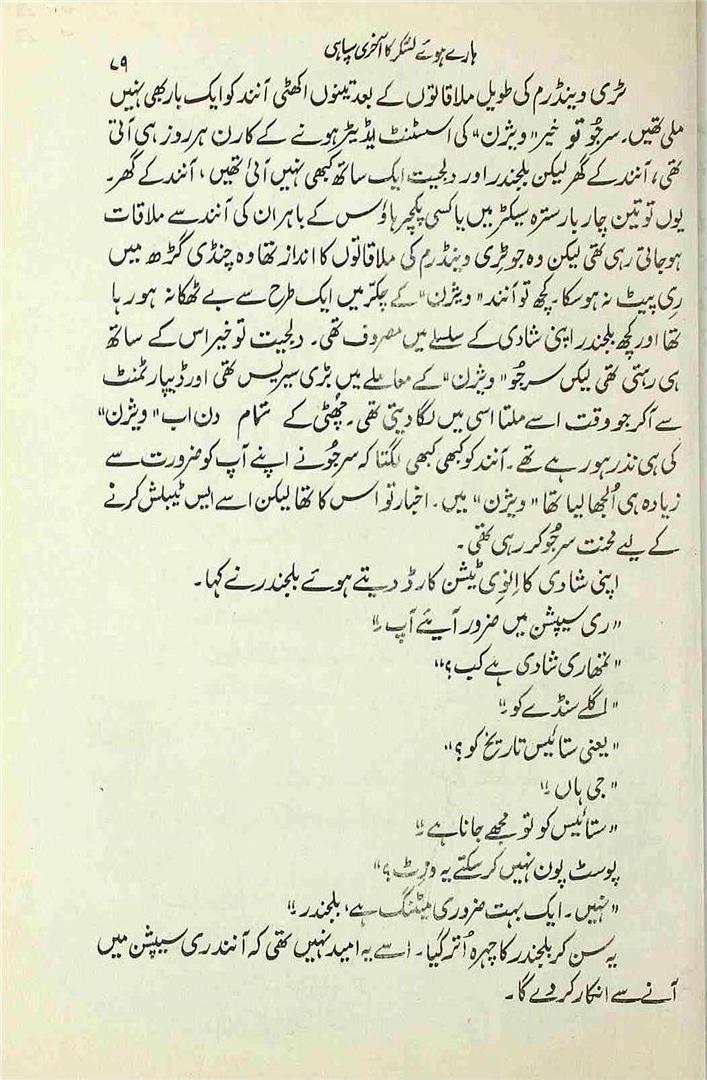 ہارے ہوئے لشکر کا آخری سپاہی
۷۹
ٹری وینڈرم کی طویل ملاقاتوں کے بعد تینوں اکھٹی آنند کو ایک بار بھی نہیں
ملی تھیں۔ سرجُو تو خیر "ویژن" کی اسسٹنٹ ایڈیٹر ہونے کے کارن ہر روز ہی آتی
تھی، آنند کے گھر لیکن بلجندر اور دلجیت ایک ساتھ کبھی نہیں آئی تھیں، آنند کے گھر۔
یوں تو تین چار بار سترہ سیکٹر میں یا کسی پکچر ہاؤس کے باہر ان کی آنند سے ملاقات
ہو جاتی رہی تھی لیکن وہ جو ٹری وینڈرم کی ملاقاتوں کا انداز تھا وہ چنڈی گڑھ میں
رِی پیٹ نہ ہو سکا۔ کچھ تو آنند "ویژن" کے چکّر میں ایک طرح سے بے ٹھکانہ ہو رہا
تھا اور کچھ بلجندر اپنی شادی کے سلسلے میں مصروف تھی۔ دلجیت تو خیر اس کے ساتھ
ہی رہتی تھی لیکن سرجُو "ویژن" کے معاملے میں بڑی سیریس تھی اور ڈیپارٹمنٹ
سے آکر جو وقت اسے ملتا اسی میں لگا دیتی تھی۔ چھُٹی کے تمام دن اب "ویژن"
کی ہی نذر ہو رہے تھے۔ آنند کو کبھی کبھی لگتا کہ سرجُو نے اپنے آپ کو ضرورت سے
زیادہ ہی اُلجھا لیا تھا "ویژن" میں۔ اخبار تو اس کا تھا لیکن اسے ایس ٹیبلش کرنے
کے لیے محنت سرجُو کر رہی تھی۔
اپنی شادی کا اِنوِی ٹیشن کارڈ دیتے ہوئے بلجندر نے کہا۔
"ری سیپشن میں ضرور آیئے آپ۔"
"تمھاری شادی ہے کب؟"
"اگلے سنڈے کو۔"
"یعنی ستائیس تاریخ کو؟"
"جی ہاں۔"
"ستائیس کو تو مجھے جانا ہے۔"
پوسٹ پون نہیں کر سکتے یہ وِزٹ؟"
"نہیں۔ ایک بہت ضروری میٹنگ ہے، بلجندر۔"
یہ سن کر بلجندر کا چہرہ اُتر گیا۔ اسے یہ امید نہیں تھی کہ آنند ری سیپشن میں
آنے سے انکار کر دے گا۔